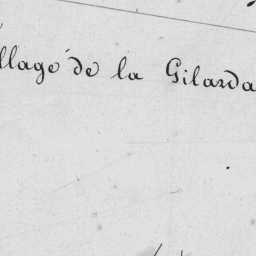 llage de la Gilarda